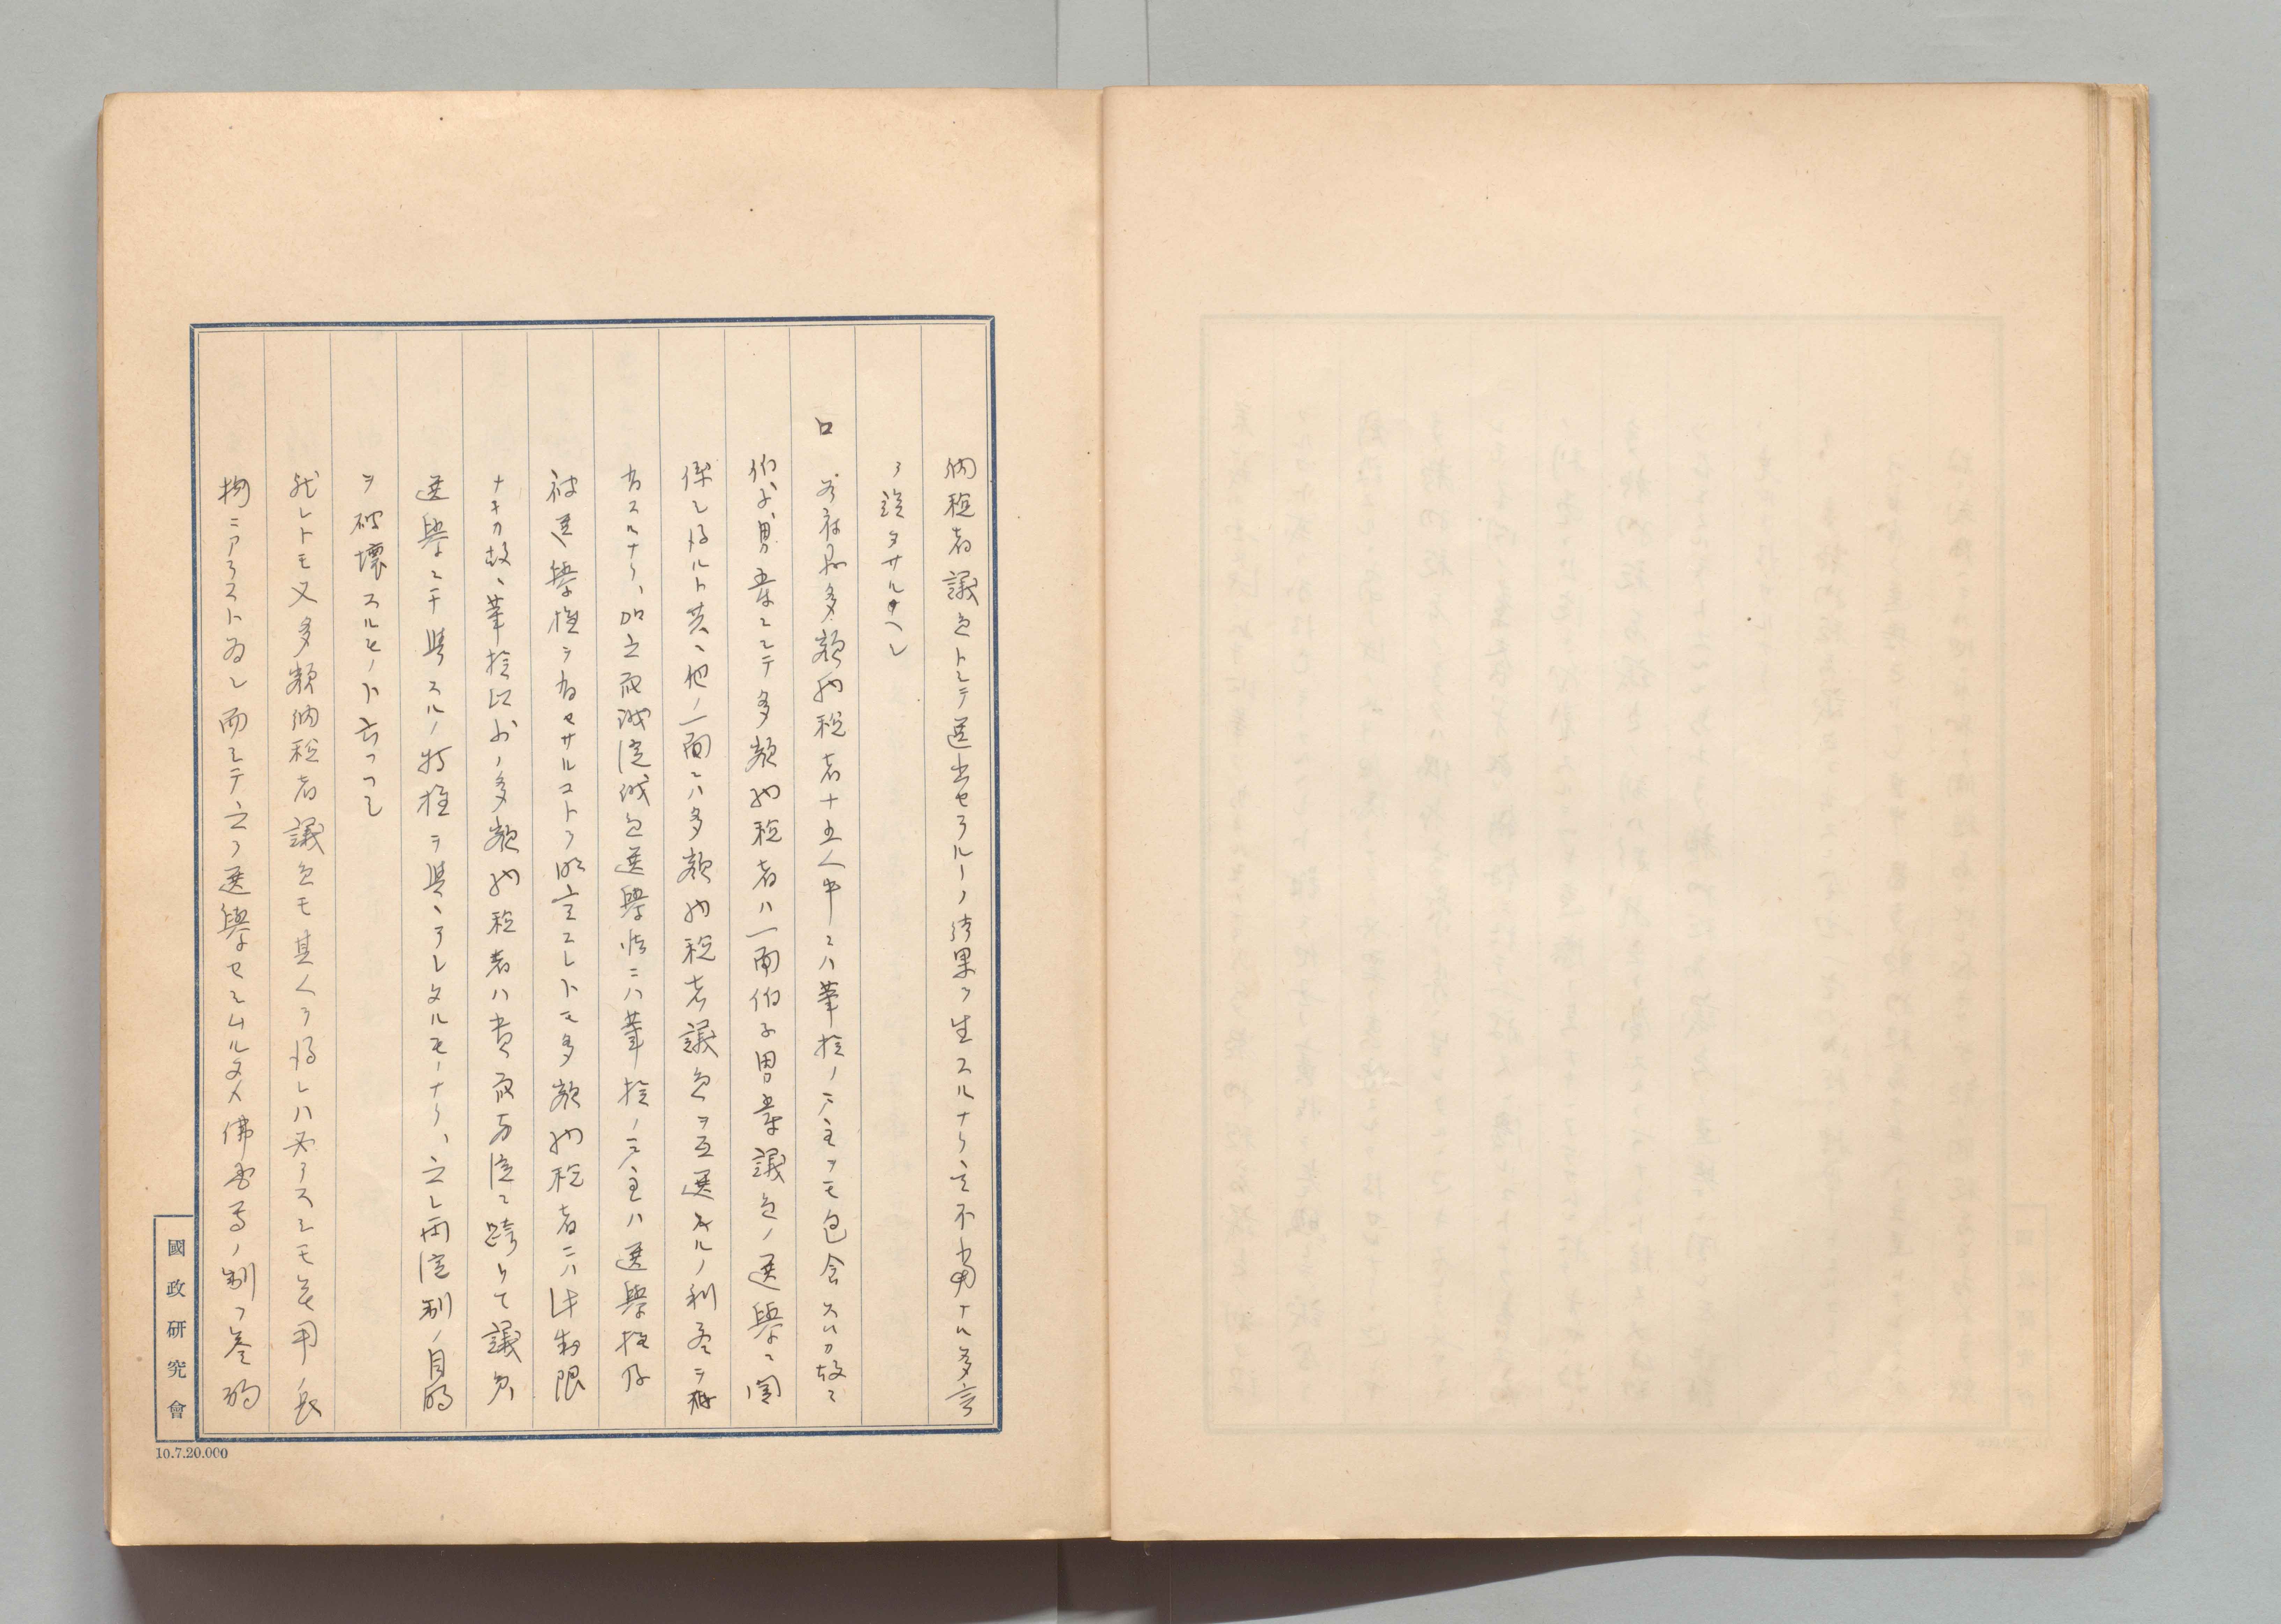 納税者議員トシテ選出セラルヽノ結果ヲ生スルナリ、之不當ナル多言
ヲ論タサルヘシ
ロ 若シ右多額納税者十五人中ニハ華族ノ戸主ヲモ包含スルカ故ニ
伯、子、男華ニシテ多額納税者ハ一面伯子男華議員ノ選擧ニ関
係シ得ルト共ニ他ノ一面ニハ多額納税者議員ヲ互選スルノ利益ヲ
有スルナリ、加之衆議院議員選擧法ニハ華族ノ戸主ハ選擧権及
被選擧権ヲ有セサルコトヲ明言スレトモ多額納税者ニハ此制限
ナキカ故ニ華族以外ノ多額納税者ハ貴衆両院ニ跨リテ議員
選擧ニ干與スルノ特権ヲ與ヘラレタルモノナリ、之レ両院制ノ目的
ヲ破壊スルモノト云フヘシ
然レトモ又多額納税者議員モ其人ヲ得レハ必ラスシモ無用ノ長
物ニアラストナシ而シテ之ヲ選擧セシムルタメ佛西等ノ制ヲ参酌
國政研究會
10.7.20.000